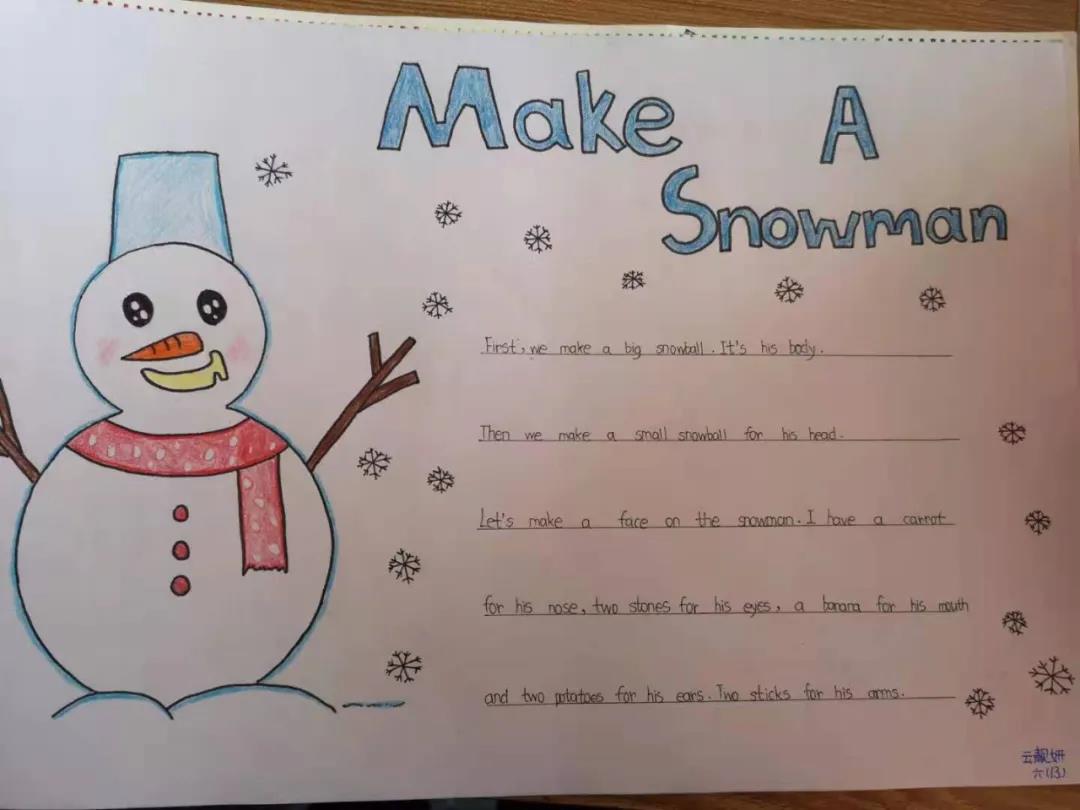 Make A
Snowman
First, we make a big snowball. It's his body.
Then we make a small snowball for his head.
Let's make a face on the snowman. I have a carrot
for his nose, two stones for his eyes, a banana for his mouth
and two potatoes for his ears. Two sticks for his arms.
云靓妍
六(13)